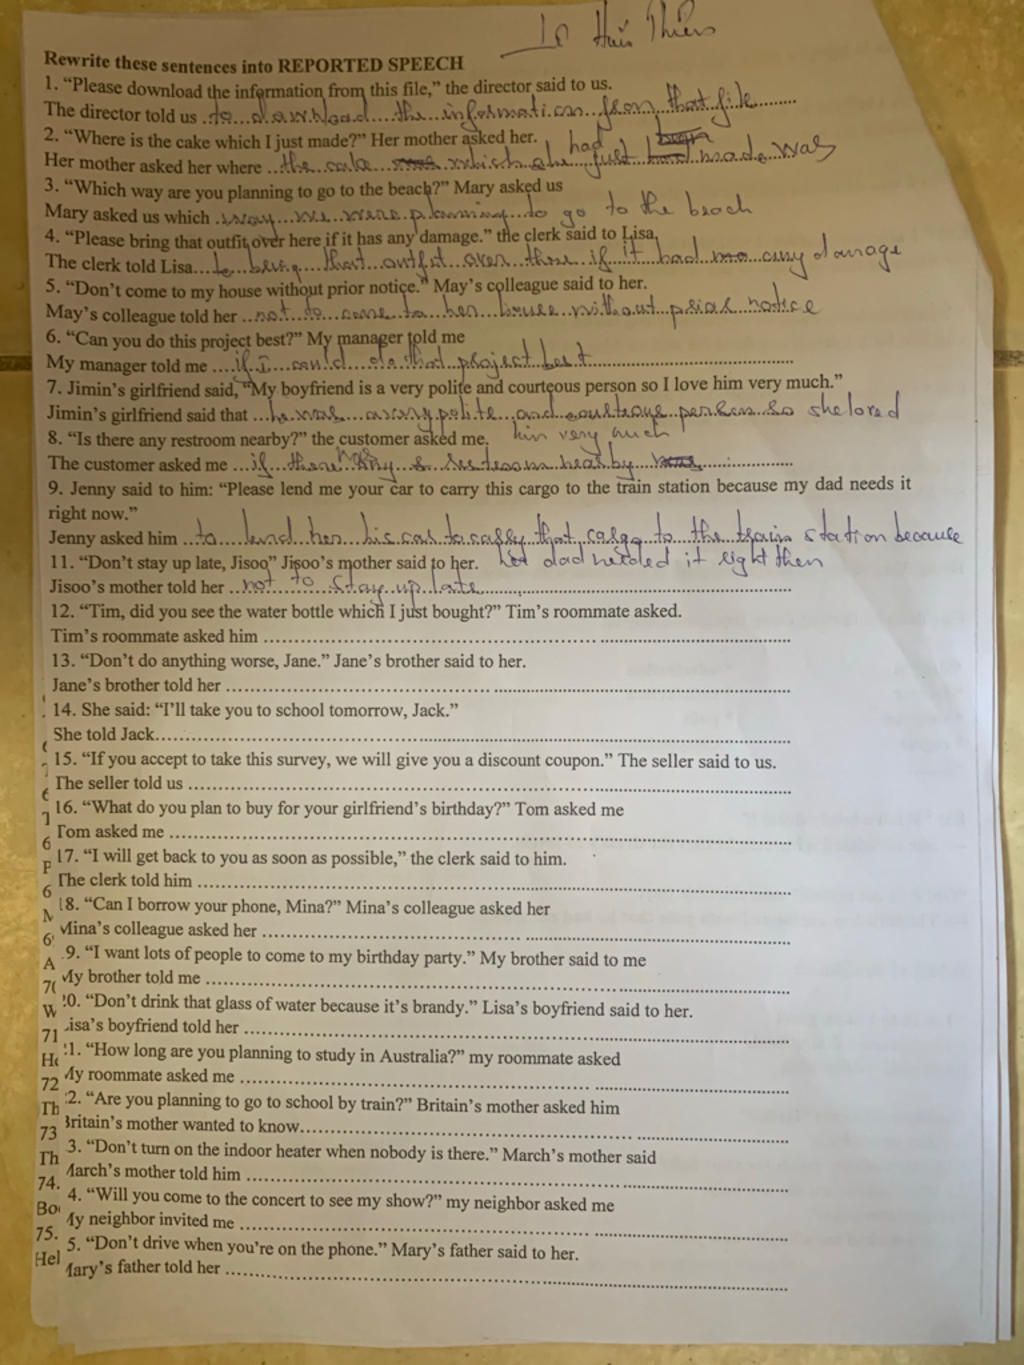 Lê Hữu Thiên
Rewrite these sentences into REPORTED SPEECH
1. “Please download the information from this file,” the director said to us.
The director told us ..to download the information from that file..........
2. “Where is the cake which I just made?” Her mother asked her.
Her mother asked her where ..the cake which she had just made was
3. “Which way are you planning to go to the beach?” Mary asked us
Mary asked us which .way we were planning to go to the beach
4. “Please bring that outfit over here if it has any damage.” the clerk said to Lisa.
The clerk told Lisa...to bring that outfit over there if it had any damage
5. “Don’t come to my house without prior notice.” May’s colleague said to her.
May’s colleague told her ...not to come to her house without prior notice
6. “Can you do this project best?” My manager told me
My manager told me ....if I could do that project best..............................
7. Jimin’s girlfriend said, “My boyfriend is a very polite and courteous person so I love him very much.”
Jimin’s girlfriend said that ...he was a very polite and courteous person so she loved
him very much
8. “Is there any restroom nearby?” the customer asked me.
The customer asked me ...if there was any restroom nearby..............
9. Jenny said to him: “Please lend me your car to carry this cargo to the train station because my dad needs it
right now.”
Jenny asked him ..to lend her his car to carry that cargo to the train station because
her dad needed it right then
11. “Don’t stay up late, Jisoo” Jisoo’s mother said to her.
Jisoo’s mother told her ..not to stay up late..............................
12. “Tim, did you see the water bottle which I just bought?” Tim’s roommate asked.
Tim’s roommate asked him ..............................
13. “Don’t do anything worse, Jane.” Jane’s brother said to her.
Jane’s brother told her ..............................
14. She said: “I’ll take you to school tomorrow, Jack.”
She told Jack..............................
15. “If you accept to take this survey, we will give you a discount coupon.” The seller said to us.
The seller told us ..............................
16. “What do you plan to buy for your girlfriend’s birthday?” Tom asked me
Tom asked me ..............................
17. “I will get back to you as soon as possible,” the clerk said to him.
The clerk told him ..............................
18. “Can I borrow your phone, Mina?” Mina’s colleague asked her
Mina’s colleague asked her ..............................
9. “I want lots of people to come to my birthday party.” My brother said to me
My brother told me ..............................
0. “Don’t drink that glass of water because it’s brandy.” Lisa’s boyfriend said to her.
Lisa’s boyfriend told her ..............................
1. “How long are you planning to study in Australia?” my roommate asked
My roommate asked me ..............................
2. “Are you planning to go to school by train?” Britain’s mother asked him
Britain’s mother wanted to know..............................
3. “Don’t turn on the indoor heater when nobody is there.” March’s mother said
March’s mother told him ..............................
4. “Will you come to the concert to see my show?” my neighbor asked me
My neighbor invited me ..............................
5. “Don’t drive when you’re on the phone.” Mary’s father said to her.
Mary’s father told her ..............................
71
72
Th
73
Th
74.
75.
Hel